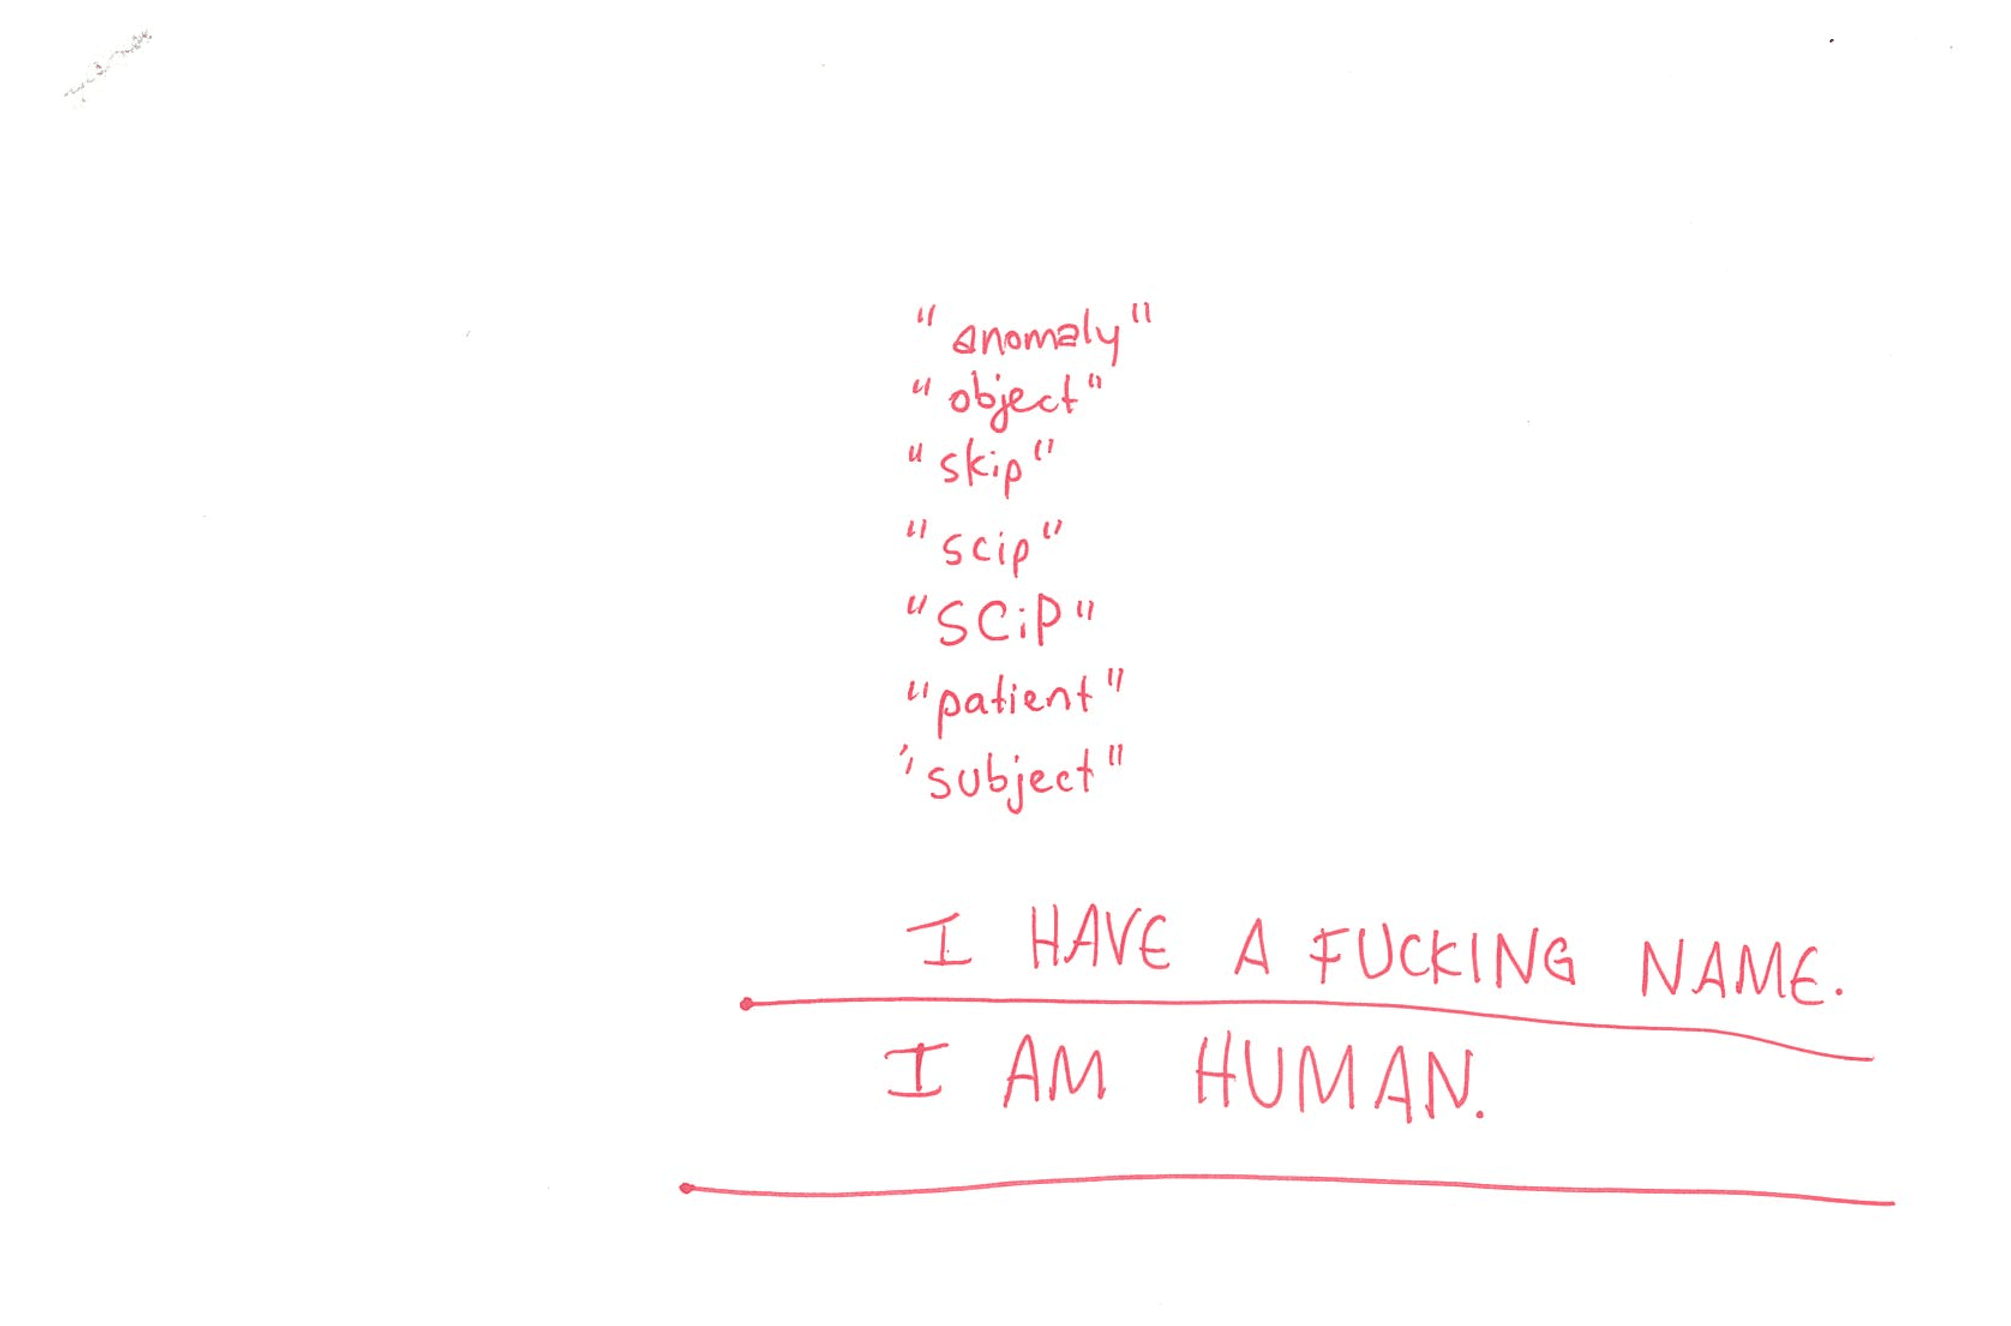 "anomaly"
"object"
"skip"
"scip"
"SCiP"
"patient"
"subject"
I HAVE A FUCKING NAME.
I AM HUMAN.